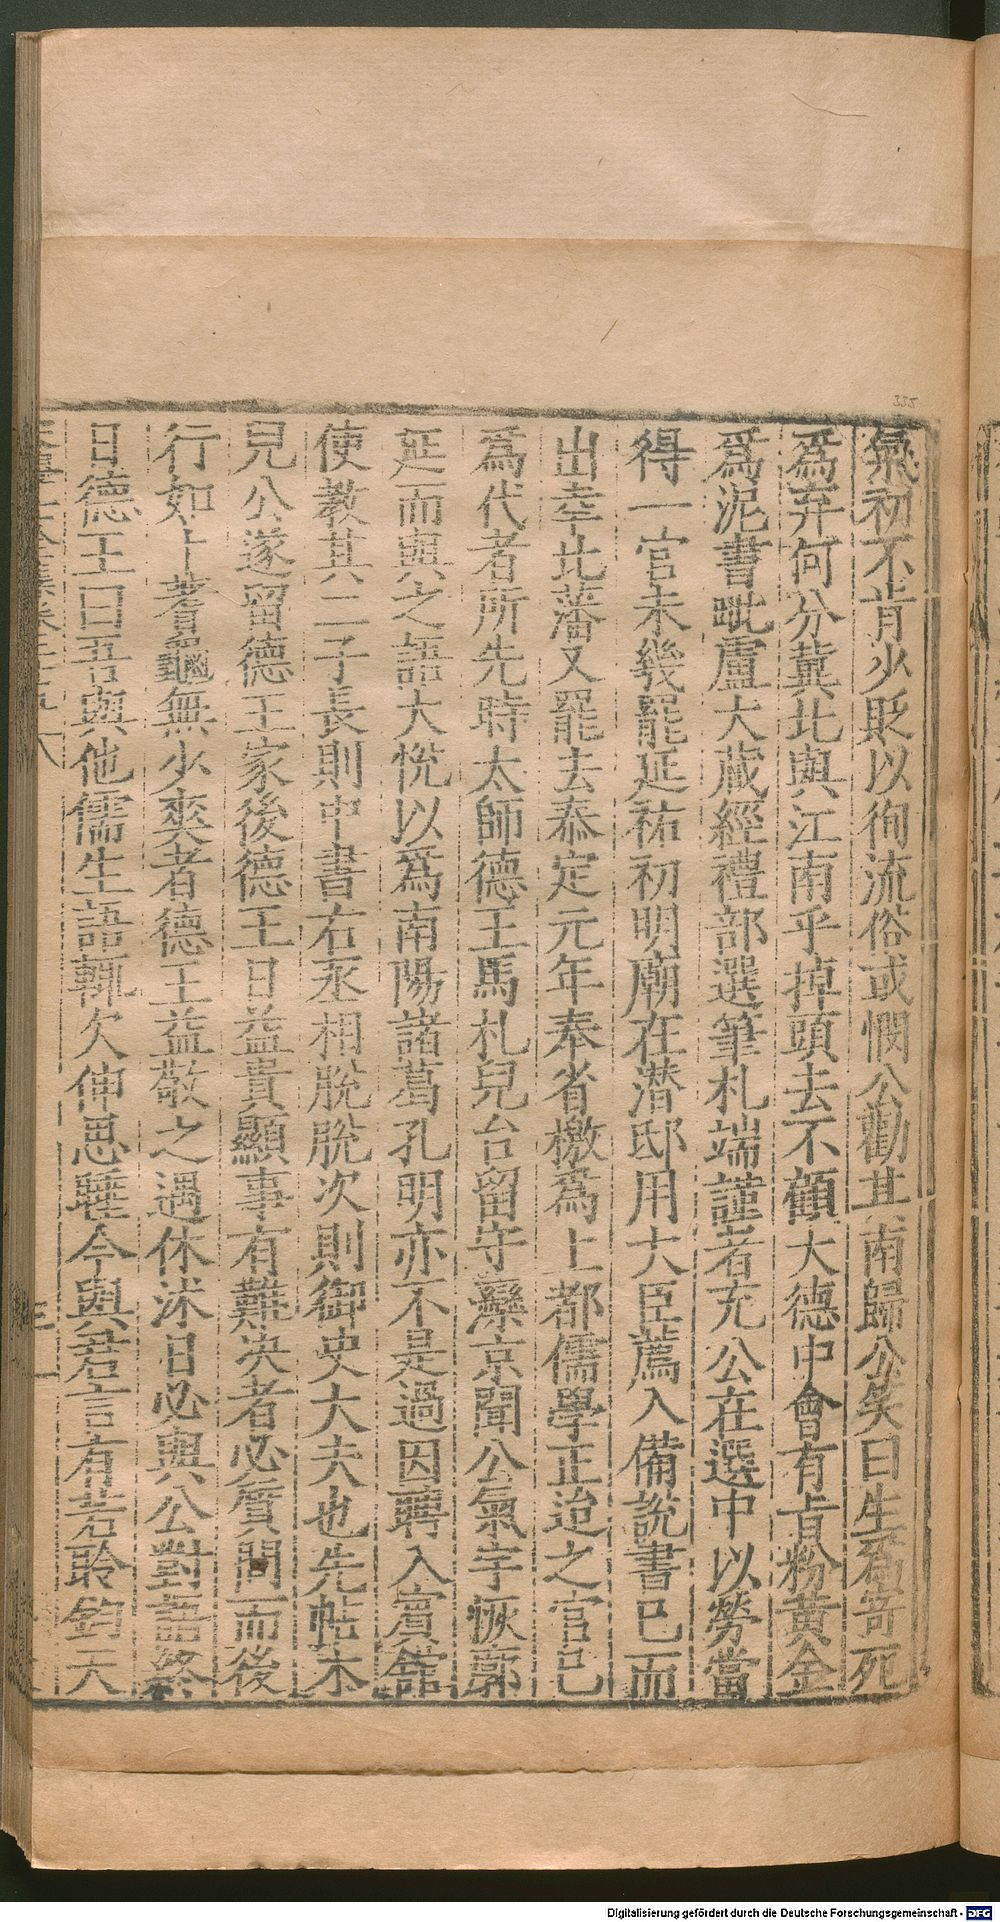 氣初不肯少貶以徇流俗或憫公勸其南歸公笑曰生爲寄死
爲弃何分冀北與江南乎掉頭去不顧大德中會有旨粉黃金
爲泥書毗盧大藏經禮部選筆札端謹者充公在選中以勞當
得一官未幾罷延祐初明廟在潜邸用大臣薦入備說書已而
出幸北藩又罷去泰定元年奉省檄爲上都儒學正迨之官已
爲代者所先時太師德王馬札兒台留守灤京聞公氣宇恢廓
延而與之語大悅以爲南陽諸葛孔明亦不是過因聘入賓館
使教其二子長則中書右丞相脫脫次則御史大夫也先帖木
兒公遂留德王家後德王日益貴顯事有難决者必質問而後
行如卜蓍龜無少爽者德王益敬之遇休沐日必與公對語終
日德王曰吾與他儒生語輒欠伸思睡今與君言有若聆鈞天
338
Digitalisierung gefördert durch die Deutsche Forschungsgemeinschaft - DFG